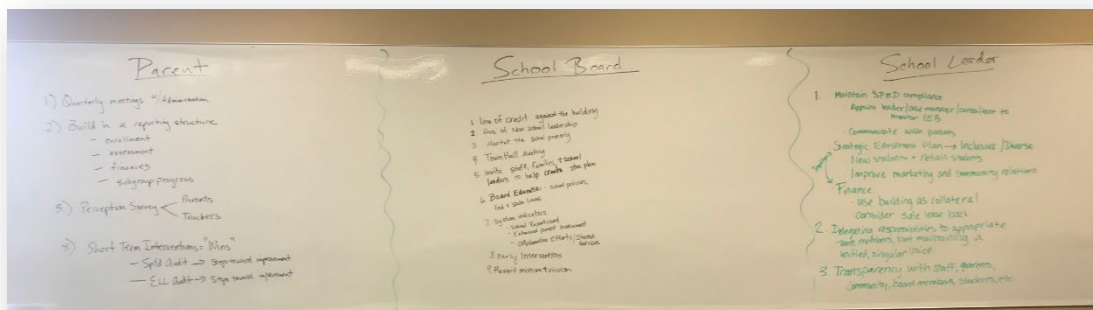 Parent
1) Quarterly meetings w/ Administration
2) Build in a reporting structure
- enrollment
- assessment
- finances
- subgroup progress
3) Perception Survey < Parents
Teachers
4) Short Term Interventions = "Wins"
- Sped Audit → Steps toward improvement
- ELL Audit → Steps toward improvement
School Board
1. line of credit against the building
2. Hire of new school leadership
3. Market the school properly
4. Town Hall Meeting
5. Invite staff, families, & school
leaders to help create the plan
6. Board Education - school policies,
fed & state laws
7. System indicators
- School Report card
- Enhanced parent involvement
- Collaboration Efforts/Shared
services
8. Early Interventions
9. Revisit mission & vision
School Leader
1. Maintain SPED compliance
- Appoint leader/case manager/consultant to
monitor
- Communicate with parents
Strategic Enrollment Plan → Inclusive/Diverse
New students + retain students
Improve marketing and community relations
Finance
- use building as collateral
Consider sale lease back
2. Delegating responsibilities to appropriate
members, but maintaining a
unified, singular voice
3. Transparency with staff, parents,
community, board members, students, etc.